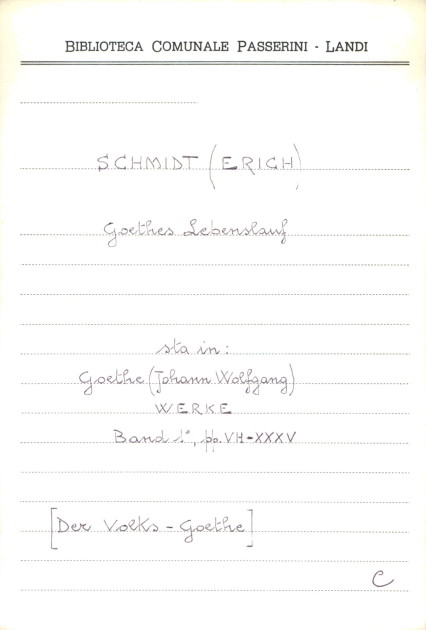 BIBLIOTECA COMUNALE PASSERINI - LANDI
SCHMIDT (ERICH)
Goethes Lebenslauf
sta in:
Goethe (Johann Wolfgang)
WERKE
Band 1°, pp. VII-XXXV
[Der Volks - Goethe]
C